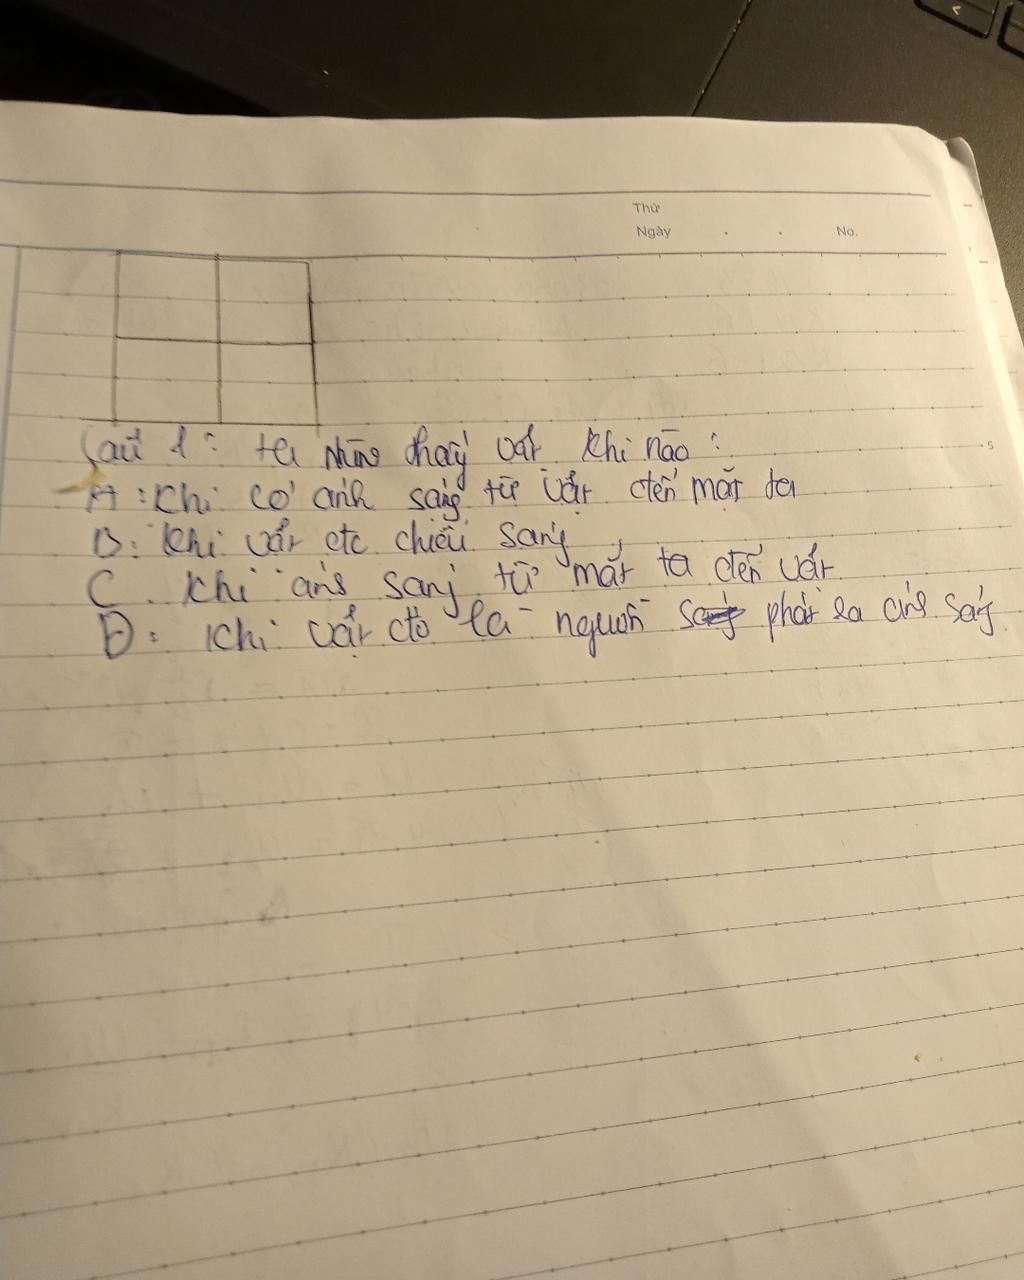 Thứ
Ngày . . No.
Câu 1: ta nhìn thấy vật khi nào?
A: Khi có ánh sáng từ vật đến mắt ta
B: Khi vật đc chiếu sáng
C. Khi ánh sáng từ mắt ta đến vật
D: Khi vật đó là nguồn phát ra ánh sáng
5